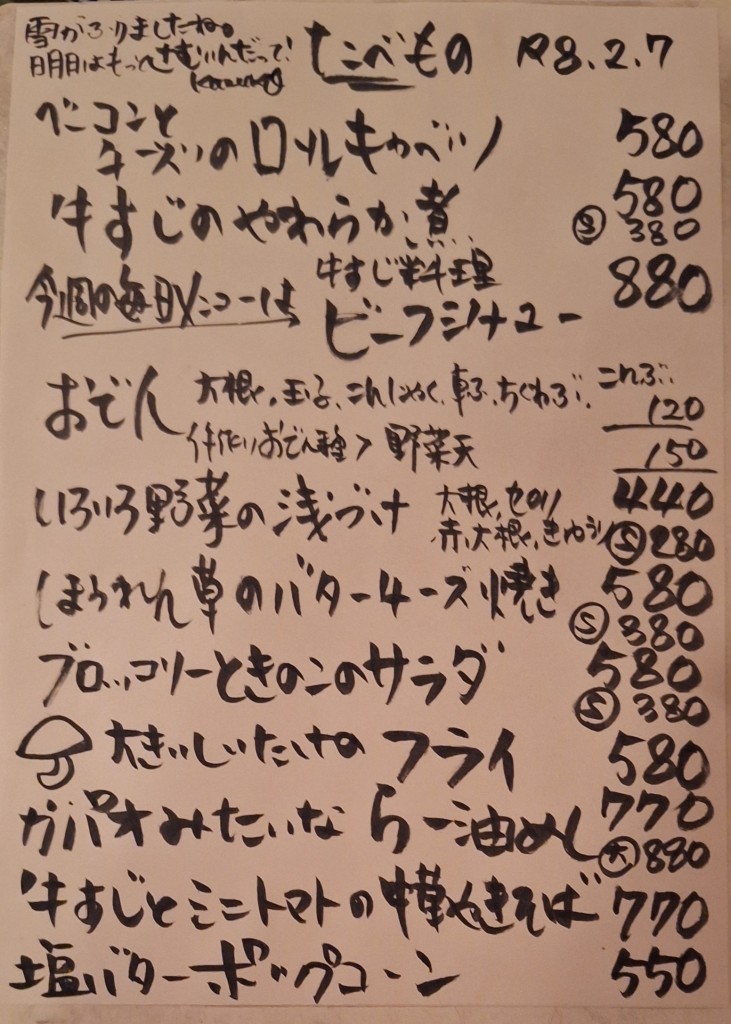 雪がふりましたね。
明日はもっとさむいんだって!
たべもの R8.2.7
ベーコンと
チーズのロールキャベツ 580
牛すじのやわらか煮 580
Ⓢ 380
今週の毎日メニューは 牛すじ料理
ビーフシチュー 880
おでん 大根、玉子、こんにゃく、車ふ、ちくわぶ、こんぶ 120
手作りおでん種> 野菜天 150
いろいろ野菜の浅づけ 大根、セロリ 440
赤大根、きゅうり Ⓢ 280
ほうれん草のバターチーズ焼き 580
Ⓢ 380
ブロッコリーときのこのサラダ 580
Ⓢ 380
大きいしいたけの フライ 580
ガパオみたいな らー油めし 770
㊅ 880
牛すじとミニトマトの中華やきそば 770
塩バターポップコーン 550